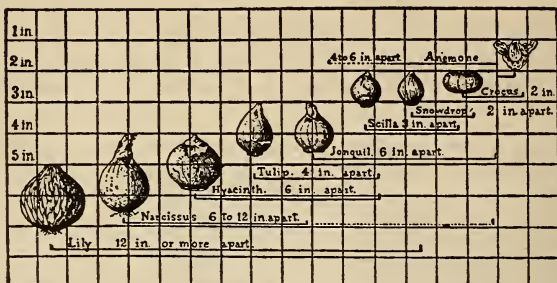 1 in
2 in
4 to 6 in. apart Anemone
3 in
Crocus 2 in.
Snowdrop 2 in. apart.
4 in
Scilla 3 in. apart
5 in
Jonquil. 6 in. apart.
Tulip. 4 in. apart.
Hyacinth. 6 in. apart.
Narcissus 6 to 12 in. apart.
Lily 12 in. or more apart.